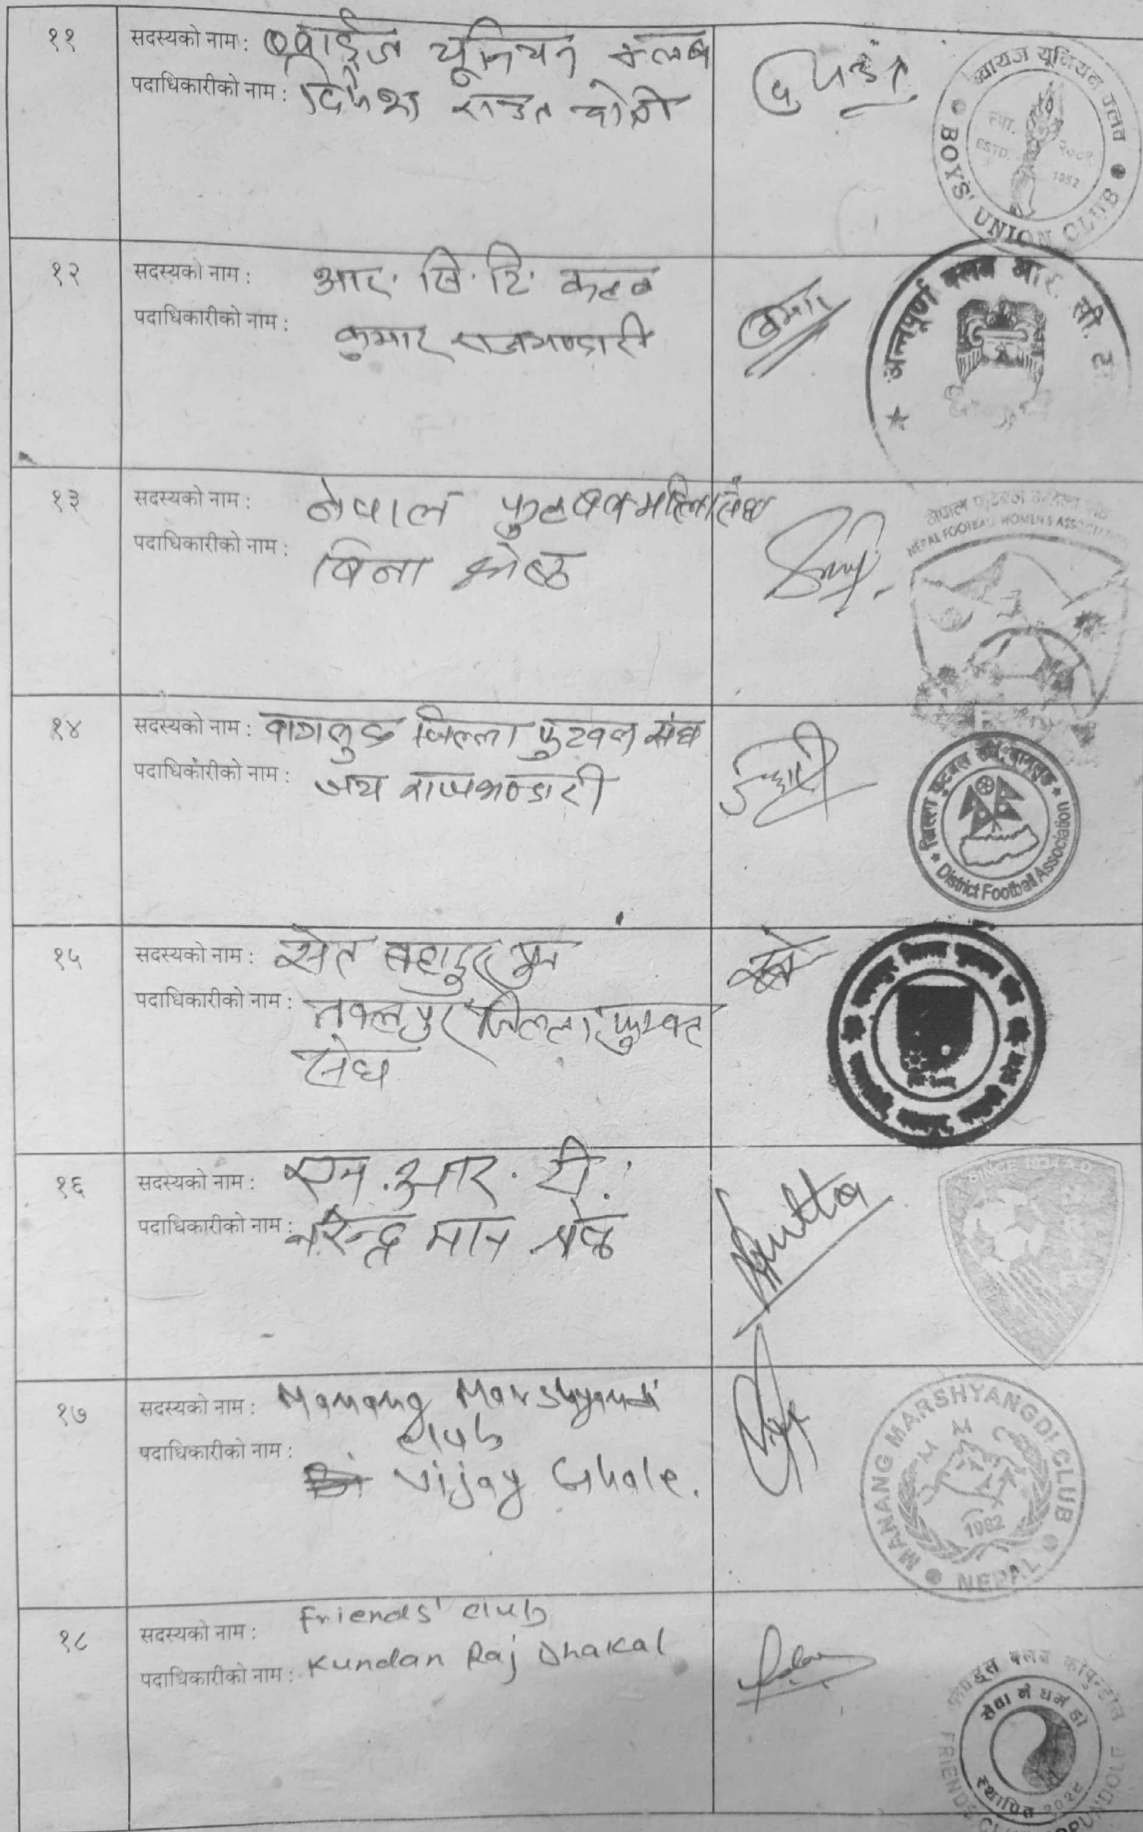 ११
सदस्यको नाम : ब्वाईज यूनियन क्लब
पदाधिकारीको नाम : दिपेश राउत
ब्वायज यूनियन क्लव
स्था. २००९
ESTD. 1952
BOYS' UNION CLUB
१२
सदस्यको नाम : आर. सि. टि. क्लब
पदाधिकारीको नाम : कुमार राजभण्डारी
कुमार
अन्नपूर्ण क्लब आर. सी. टी
१३
सदस्यको नाम : नेपाल फुटबल महिला संघ
पदाधिकारीको नाम : बिना श्रेष्ठ
नेपाल फुटबल महिला संघ
NEPAL FOOTBALL WOMEN'S ASSOCIATION
१४
सदस्यको नाम : बागलुङ जिल्ला फुटवल संघ
पदाधिकारीको नाम : जय राजभण्डारी
जिल्ला फुटबल संघ, बागलुङ
District Football Association
१५
सदस्यको नाम : सेत बहादुर पुन
पदाधिकारीको नाम : नवलपुर जिल्ला फुटबल
संघ
१६
सदस्यको नाम : एन. आर. टी.
पदाधिकारीको नाम : नरेन्द्र मान श्रेष्ठ
SINCE 1934 A.D.
१७
सदस्यको नाम : Manang Marshyangdi
club
पदाधिकारीको नाम : Vijay Ghale.
MANANG MARSHYANGDI CLUB
1982
NEPAL
१८
सदस्यको नाम : Friends' club
पदाधिकारीको नाम : Kundan Raj Dhakal
फ्रेण्ड्स क्लब कोपुन्डोल
सेवा नै धर्म हो
स्थापित २०२८
FRIENDS CLUB KOPUNDOLE